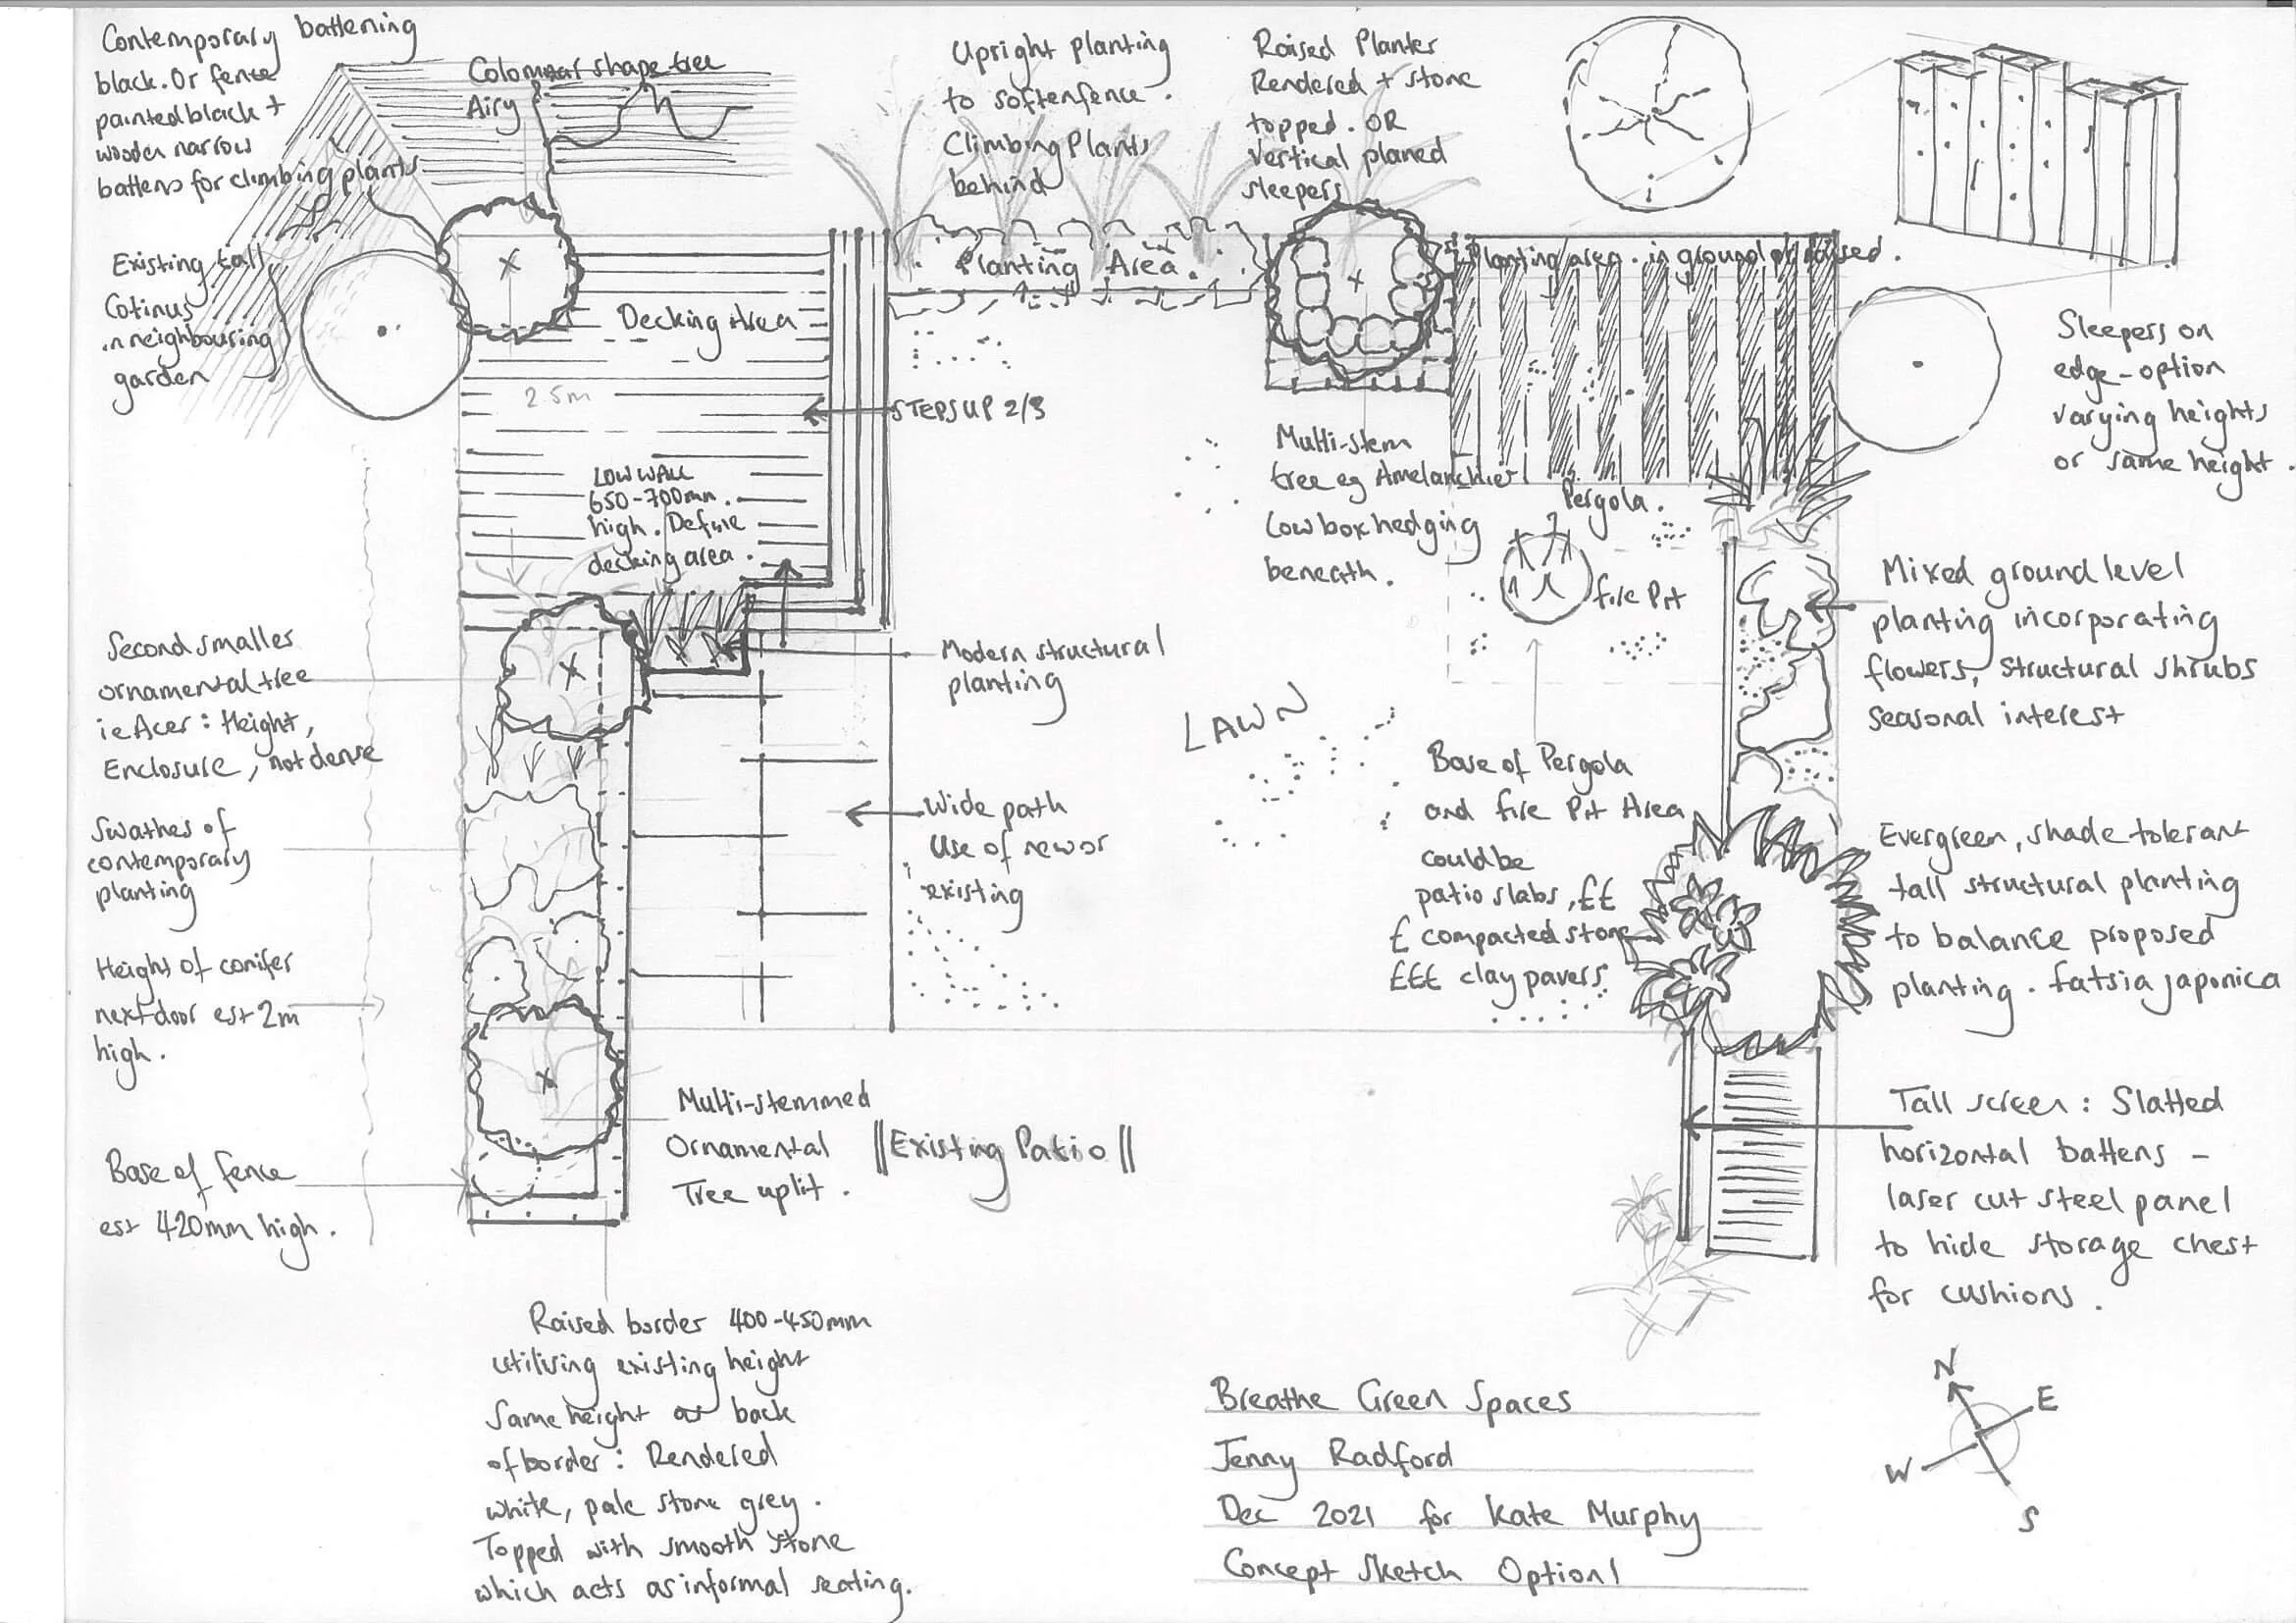 Contemporary battening
black. Or fence
painted black +
wooden narrow
battens for climbing plants
Existing tall
Cotinus
in neighbouring
garden
shape tree
Airy
Upright planting
to soften fence.
Climbing Plants
behind
Raised Planter
Rendered + stone
topped. OR
vertical planed
sleepers
Decking Area
2.5m
STEPS UP 2/3
LOW WALL
650-700mm.
high. Define
decking area.
Planting Area.
Planting area. in ground or raised.
Multi-stem
tree eg Amelanchier
Low box hedging
beneath.
Pergola.
fire Pit
Sleepers on
edge - option
varying heights
or same height.
Mixed ground level
planting incorporating
flowers, structural shrubs
seasonal interest
Second smaller
ornamental tree
ie Acer: Height,
Enclosure, not dense
Swathes of
contemporary
planting
Height of conifer
next door est 2m
high.
Base of fence
est 420mm high.
Modern structural
planting
Wide path
Use of new or
existing
LAWN
Base of Pergola
and fire Pit Area
could be
patio slabs, ££
£ compacted stone
£££ clay pavers
Evergreen, shade tolerant
tall structural planting
to balance proposed
planting. fatsia japonica
Multi-stemmed
Ornamental
Tree uplit.
||Existing Patio||
Tall screen: Slatted
horizontal battens -
laser cut steel panel
to hide storage chest
for cushions.
Raised border 400-450mm
utilising existing height
Same height as back
of border: Rendered
white, pale stone grey.
Topped with smooth stone
which acts as informal seating.
Breathe Green Spaces
Jenny Radford
Dec 2021 for Kate Murphy
Concept Sketch Option 1
N
E
W
S